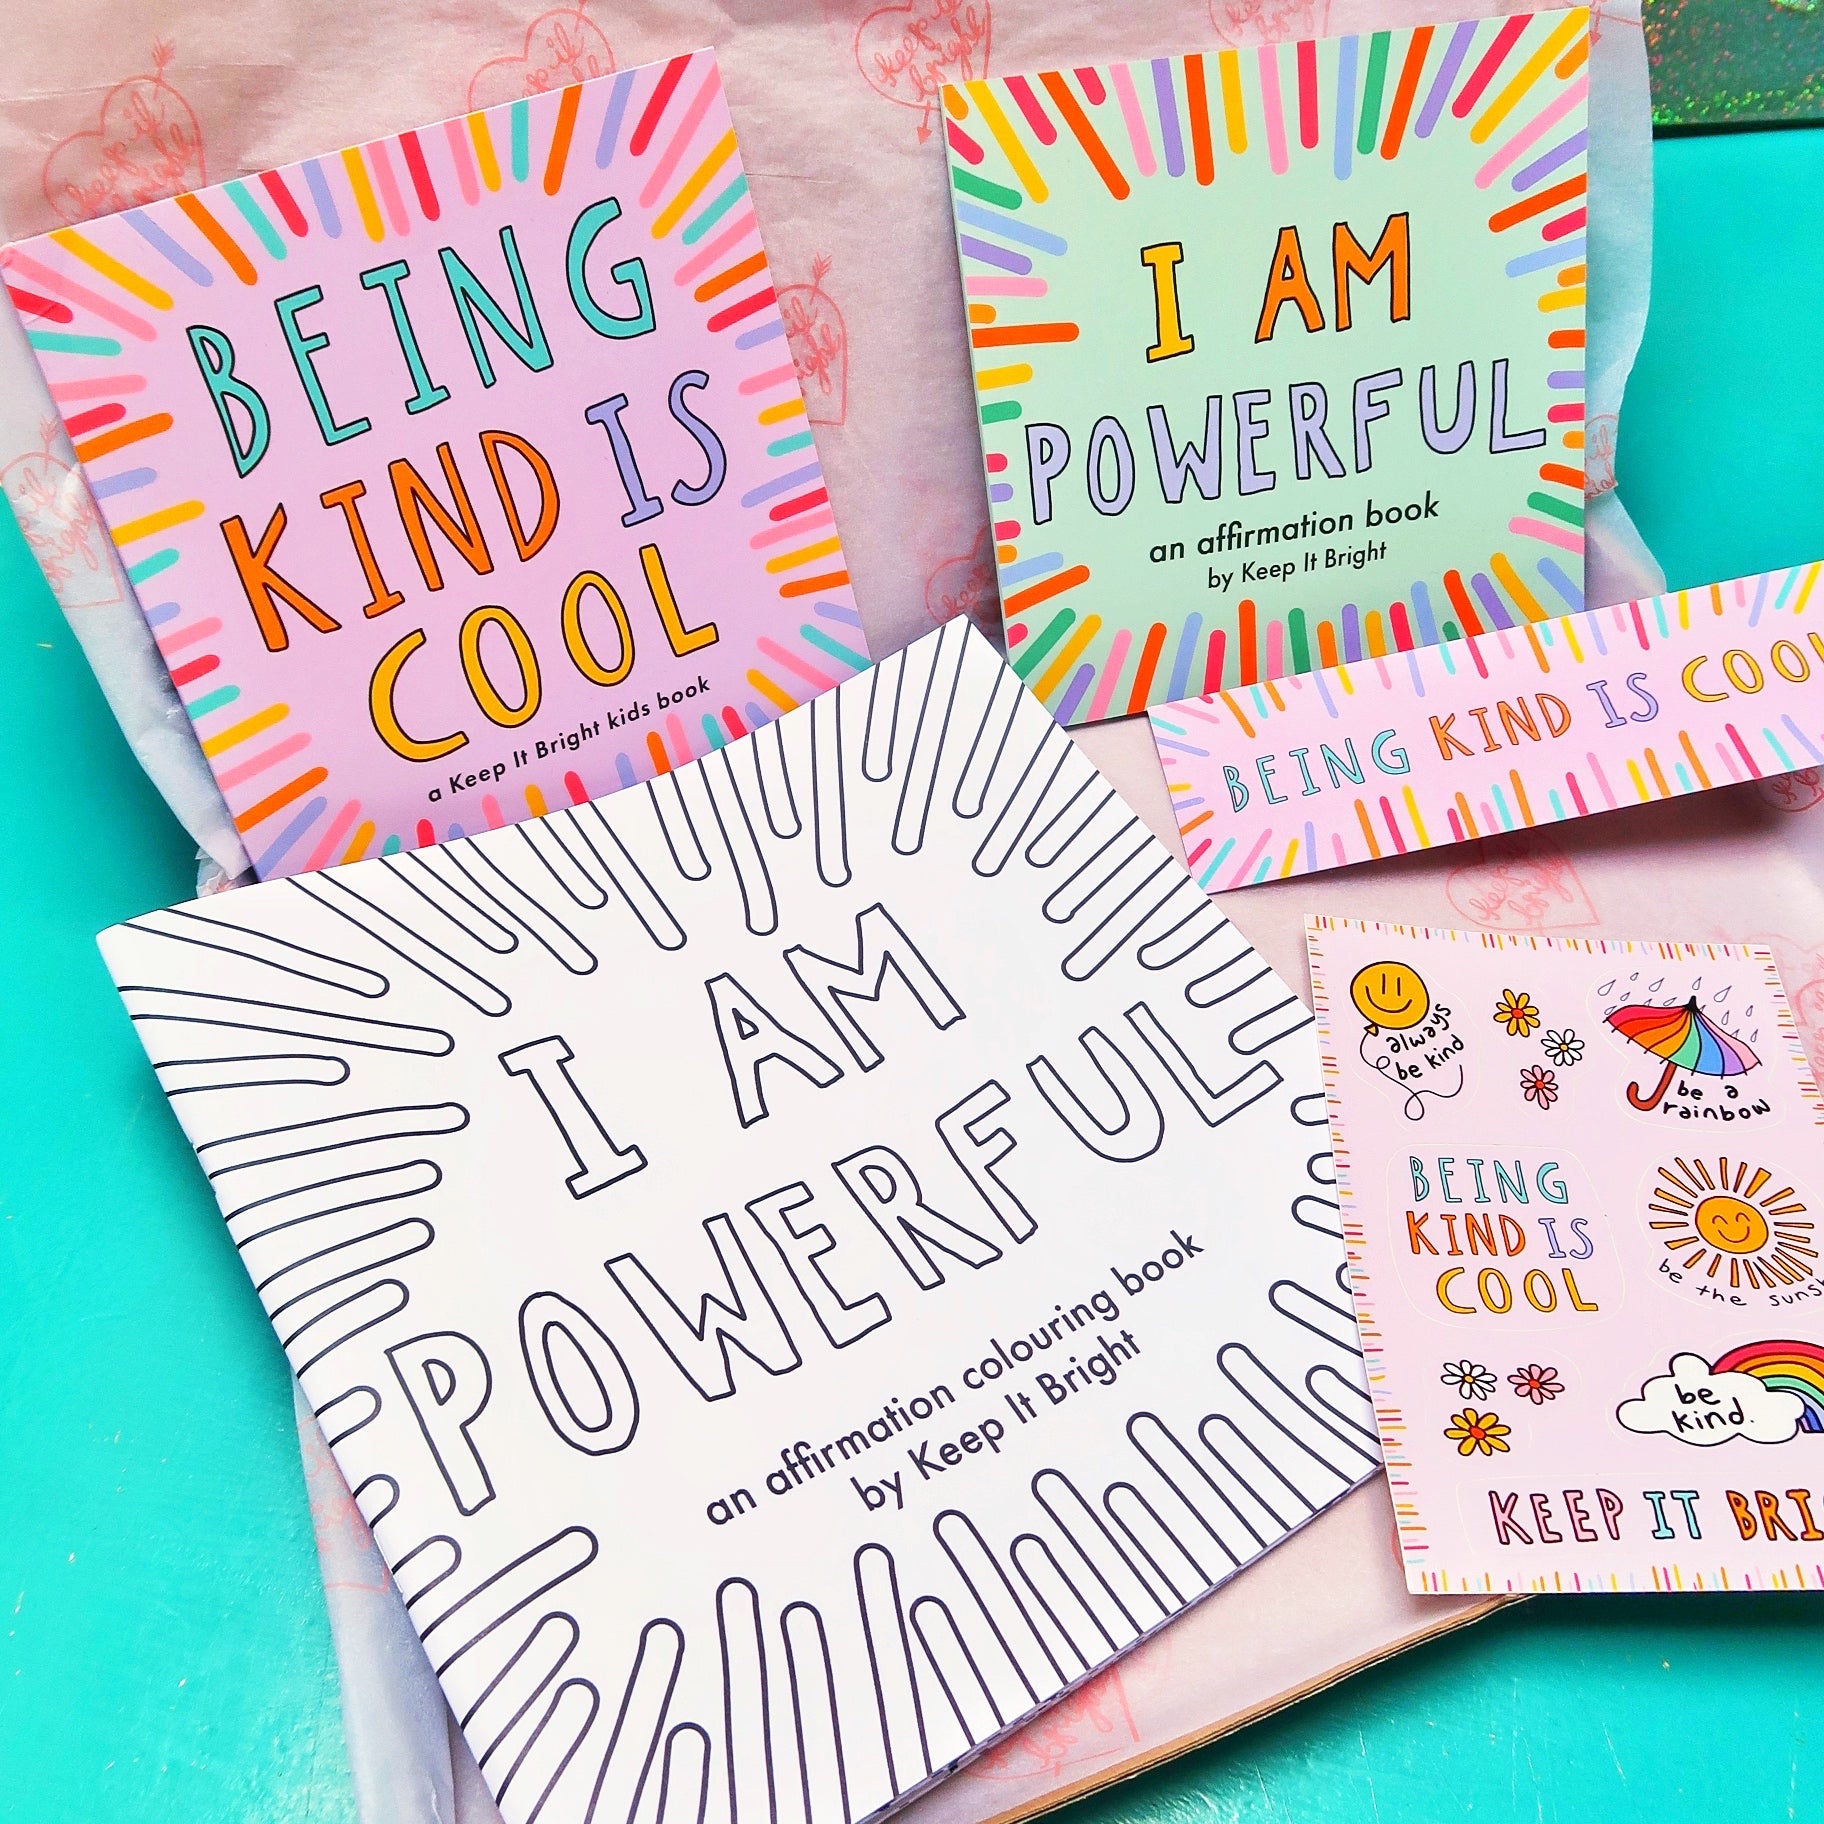 BEING
KIND IS
COOL
a Keep It Bright kids book
I AM
POWERFUL
an affirmation book
by Keep It Bright
BEING KIND IS COOL
I AM
POWERFUL
an affirmation colouring book
by Keep It Bright
always
be kind
be a
rainbow
BEING
KIND IS
COOL
be the
be
kind.
KEEP IT
keep it
bright
keep it
bright
keep it
bright